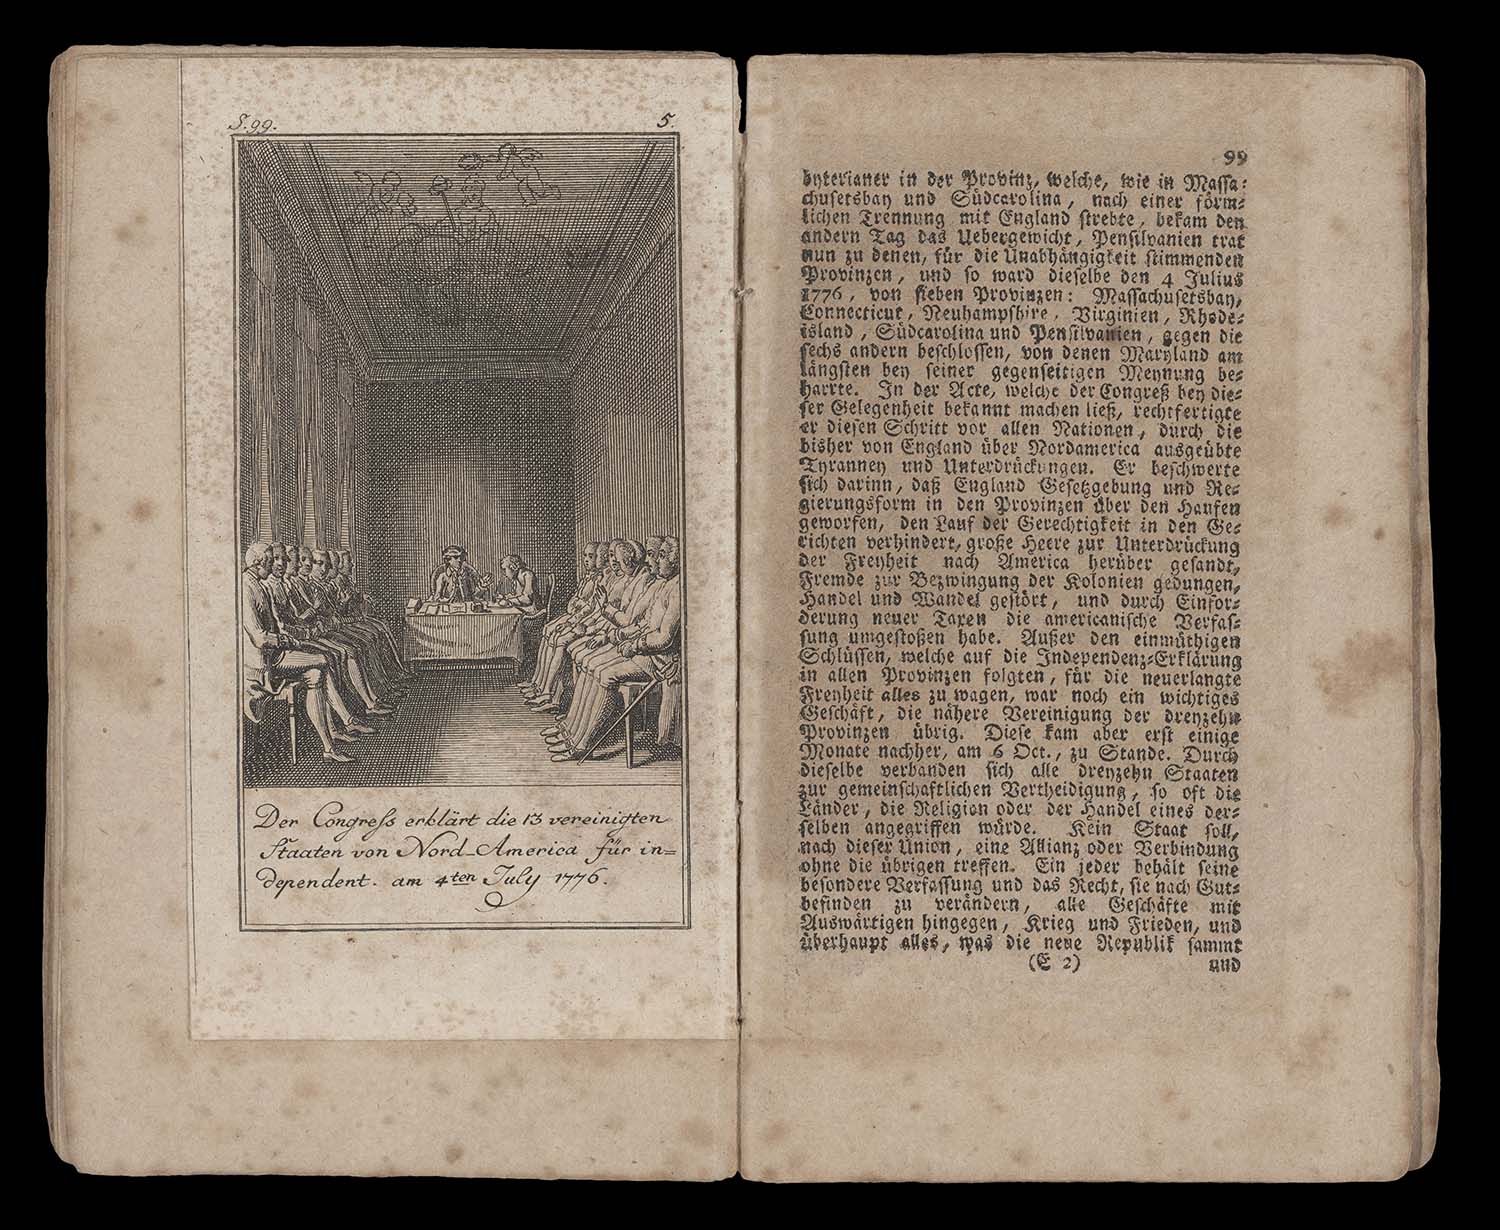 S. 99.
5.
Der Congreſs erklärt die 13 vereinigten
Staaten von Nord-America für in=
dependent. am 4ten July 1776.
99
byterianer in der Provinz, welche, wie in Maſſa:
chuſetsbay und Südcarolina, nach einer förm=
lichen Trennung mit England ſtrebte, bekam den
andern Tag das Uebergewicht, Penſilvanien trat
nun zu denen, für die Unabhängigkeit ſtimmenden
Provinzen, und ſo ward dieſelbe den 4 Julius
1776, von ſieben Provinzen: Maſſachuſetsbay,
Connecticut, Neuhampſhire, Virginien, Rhode=
island, Südcarolina und Penſilvanien, gegen die
ſechs andern beſchloſſen, von denen Maryland am
längſten bey ſeiner gegenſeitigen Meynung be=
harrte. In der Acte, welche der Congreß bey die=
ſer Gelegenheit bekannt machen ließ, rechtfertigte
er dieſen Schritt vor allen Nationen, durch die
bisher von England über Nordamerica ausgeübte
Tyranney und Unterdrückungen. Er beſchwerte
ſich darinn, daß England Geſetzgebung und Re=
gierungsform in den Provinzen über den Haufen
geworfen, den Lauf der Gerechtigkeit in den Ge=
richten verhindert, große Heere zur Unterdrückung
der Freyheit nach America herüber geſandt,
Fremde zur Bezwingung der Kolonien gedungen,
Handel und Wandel geſtört, und durch Einfor=
derung neuer Taxen die americaniſche Verfaſ=
ſung umgeſtoßen habe. Außer den einmüthigen
Schlüſſen, welche auf die Independenz=Erklärung
in allen Provinzen folgten, für die neuerlangte
Freyheit alles zu wagen, war noch ein wichtiges
Geſchäft, die nähere Vereinigung der dreyzehn
Provinzen übrig. Dieſe kam aber erſt einige
Monate nachher, am 6 Oct., zu Stande. Durch
dieſelbe verbanden ſich alle dreyzehn Staaten
zur gemeinſchaftlichen Vertheidigung, ſo oft die
Länder, die Religion oder der Handel eines der=
ſelben angegriffen würde. Kein Staat ſoll,
nach dieſer Union, eine Allianz oder Verbindung
ohne die übrigen treffen. Ein jeder behält ſeine
beſondere Verfaſſung und das Recht, ſie nach Gut=
befinden zu verändern, alle Geſchäfte mit
Auswärtigen hingegen, Krieg und Frieden, und
überhaupt alles, was die neue Republik ſammt
(E 2) und